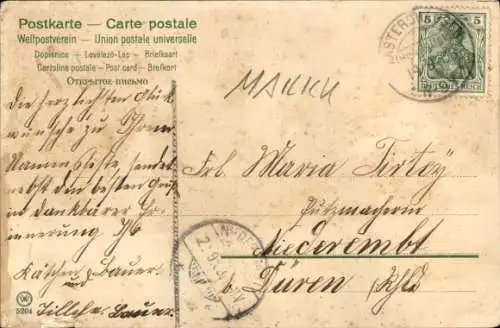 Postkarte — Carte postale
Weltpostverein — Union postale universelle
Dopisnice — Levelező-Lap — Briefkaart
Cartolina postale — Post card — Brefkort
Открытое письмо
5
5
DEUTSCHES REICH
MARKEN
Die herzlichsten Glück
wünsche zu Ihrem
Namensfeste sendet
nebst den besten Grüß
in dankbarer Er
innerung
Käthchen Bauer
Tillchen Bauer
Frl. Maria Tirtey
Putzmacherin
Niederembt
b/ Düren Rhld
5204